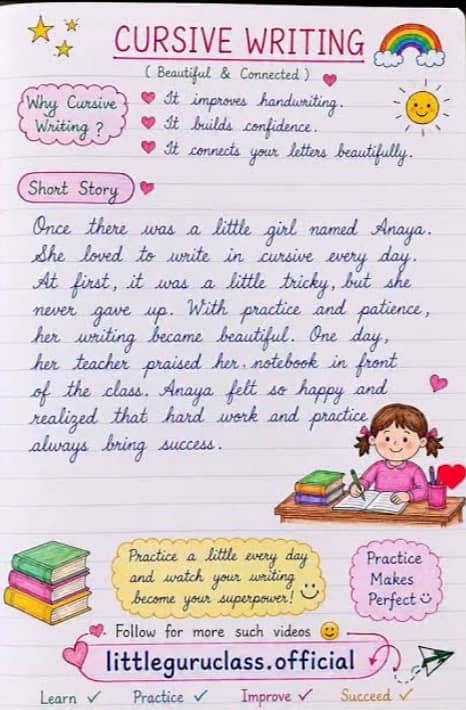 CURSIVE WRITING
( Beautiful & Connected )
Why Cursive
Writing ?
It improves handwriting.
It builds confidence.
It connects your letters beautifully.
Short Story
Once there was a little girl named Anaya.
She loved to write in cursive every day.
At first, it was a little tricky, but she
never gave up. With practice and patience,
her writing became beautiful. One day,
her teacher praised her notebook in front
of the class. Anaya felt so happy and
realized that hard work and practice
always bring success.
Practice a little every day
and watch your writing
become your superpower!
Practice
Makes
Perfect
Follow for more such videos
littleguruclass.official
Learn ✓ Practice ✓ Improve ✓ Succeed ✓